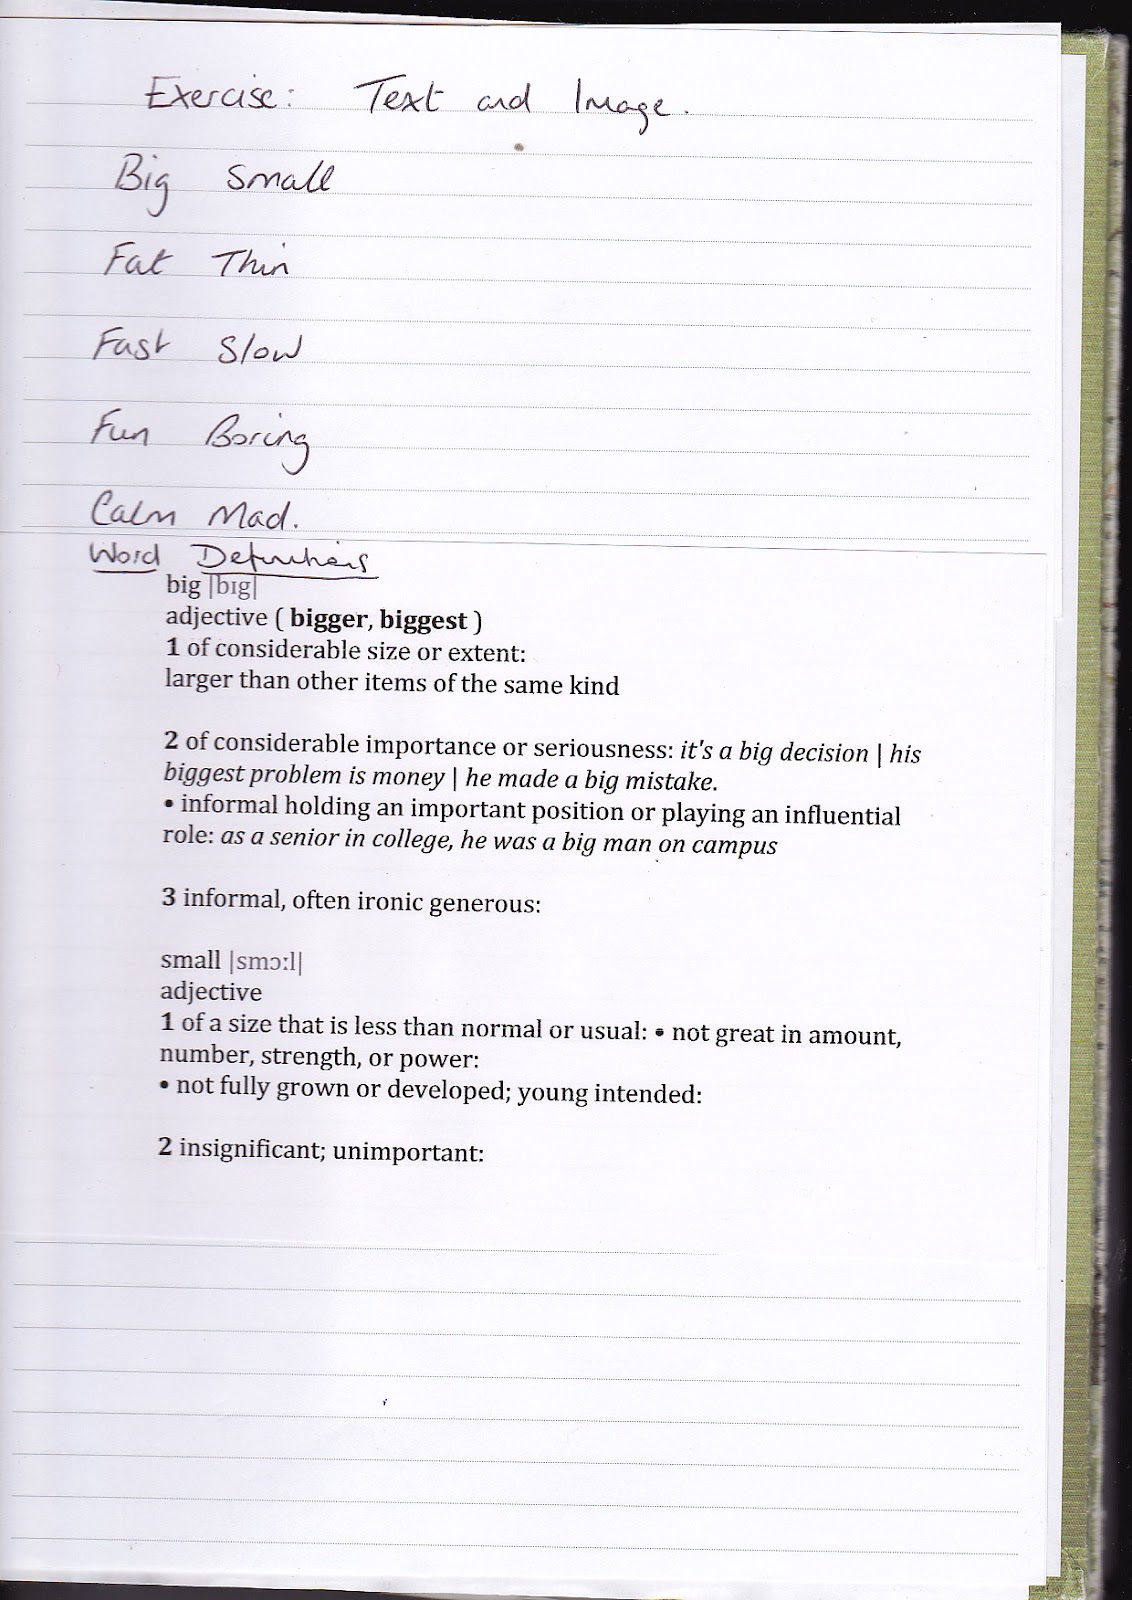 Exercise: Text and Image.
Big Small
Fat Thin
Fast Slow
Fun Boring
Calm Mad.
Word Definitions
big |bɪɡ|
adjective ( bigger, biggest )
1 of considerable size or extent:
larger than other items of the same kind
2 of considerable importance or seriousness: it's a big decision | his
biggest problem is money | he made a big mistake.
• informal holding an important position or playing an influential
role: as a senior in college, he was a big man on campus
3 informal, often ironic generous:
small |smɔːl|
adjective
1 of a size that is less than normal or usual: • not great in amount,
number, strength, or power:
• not fully grown or developed; young intended:
2 insignificant; unimportant: